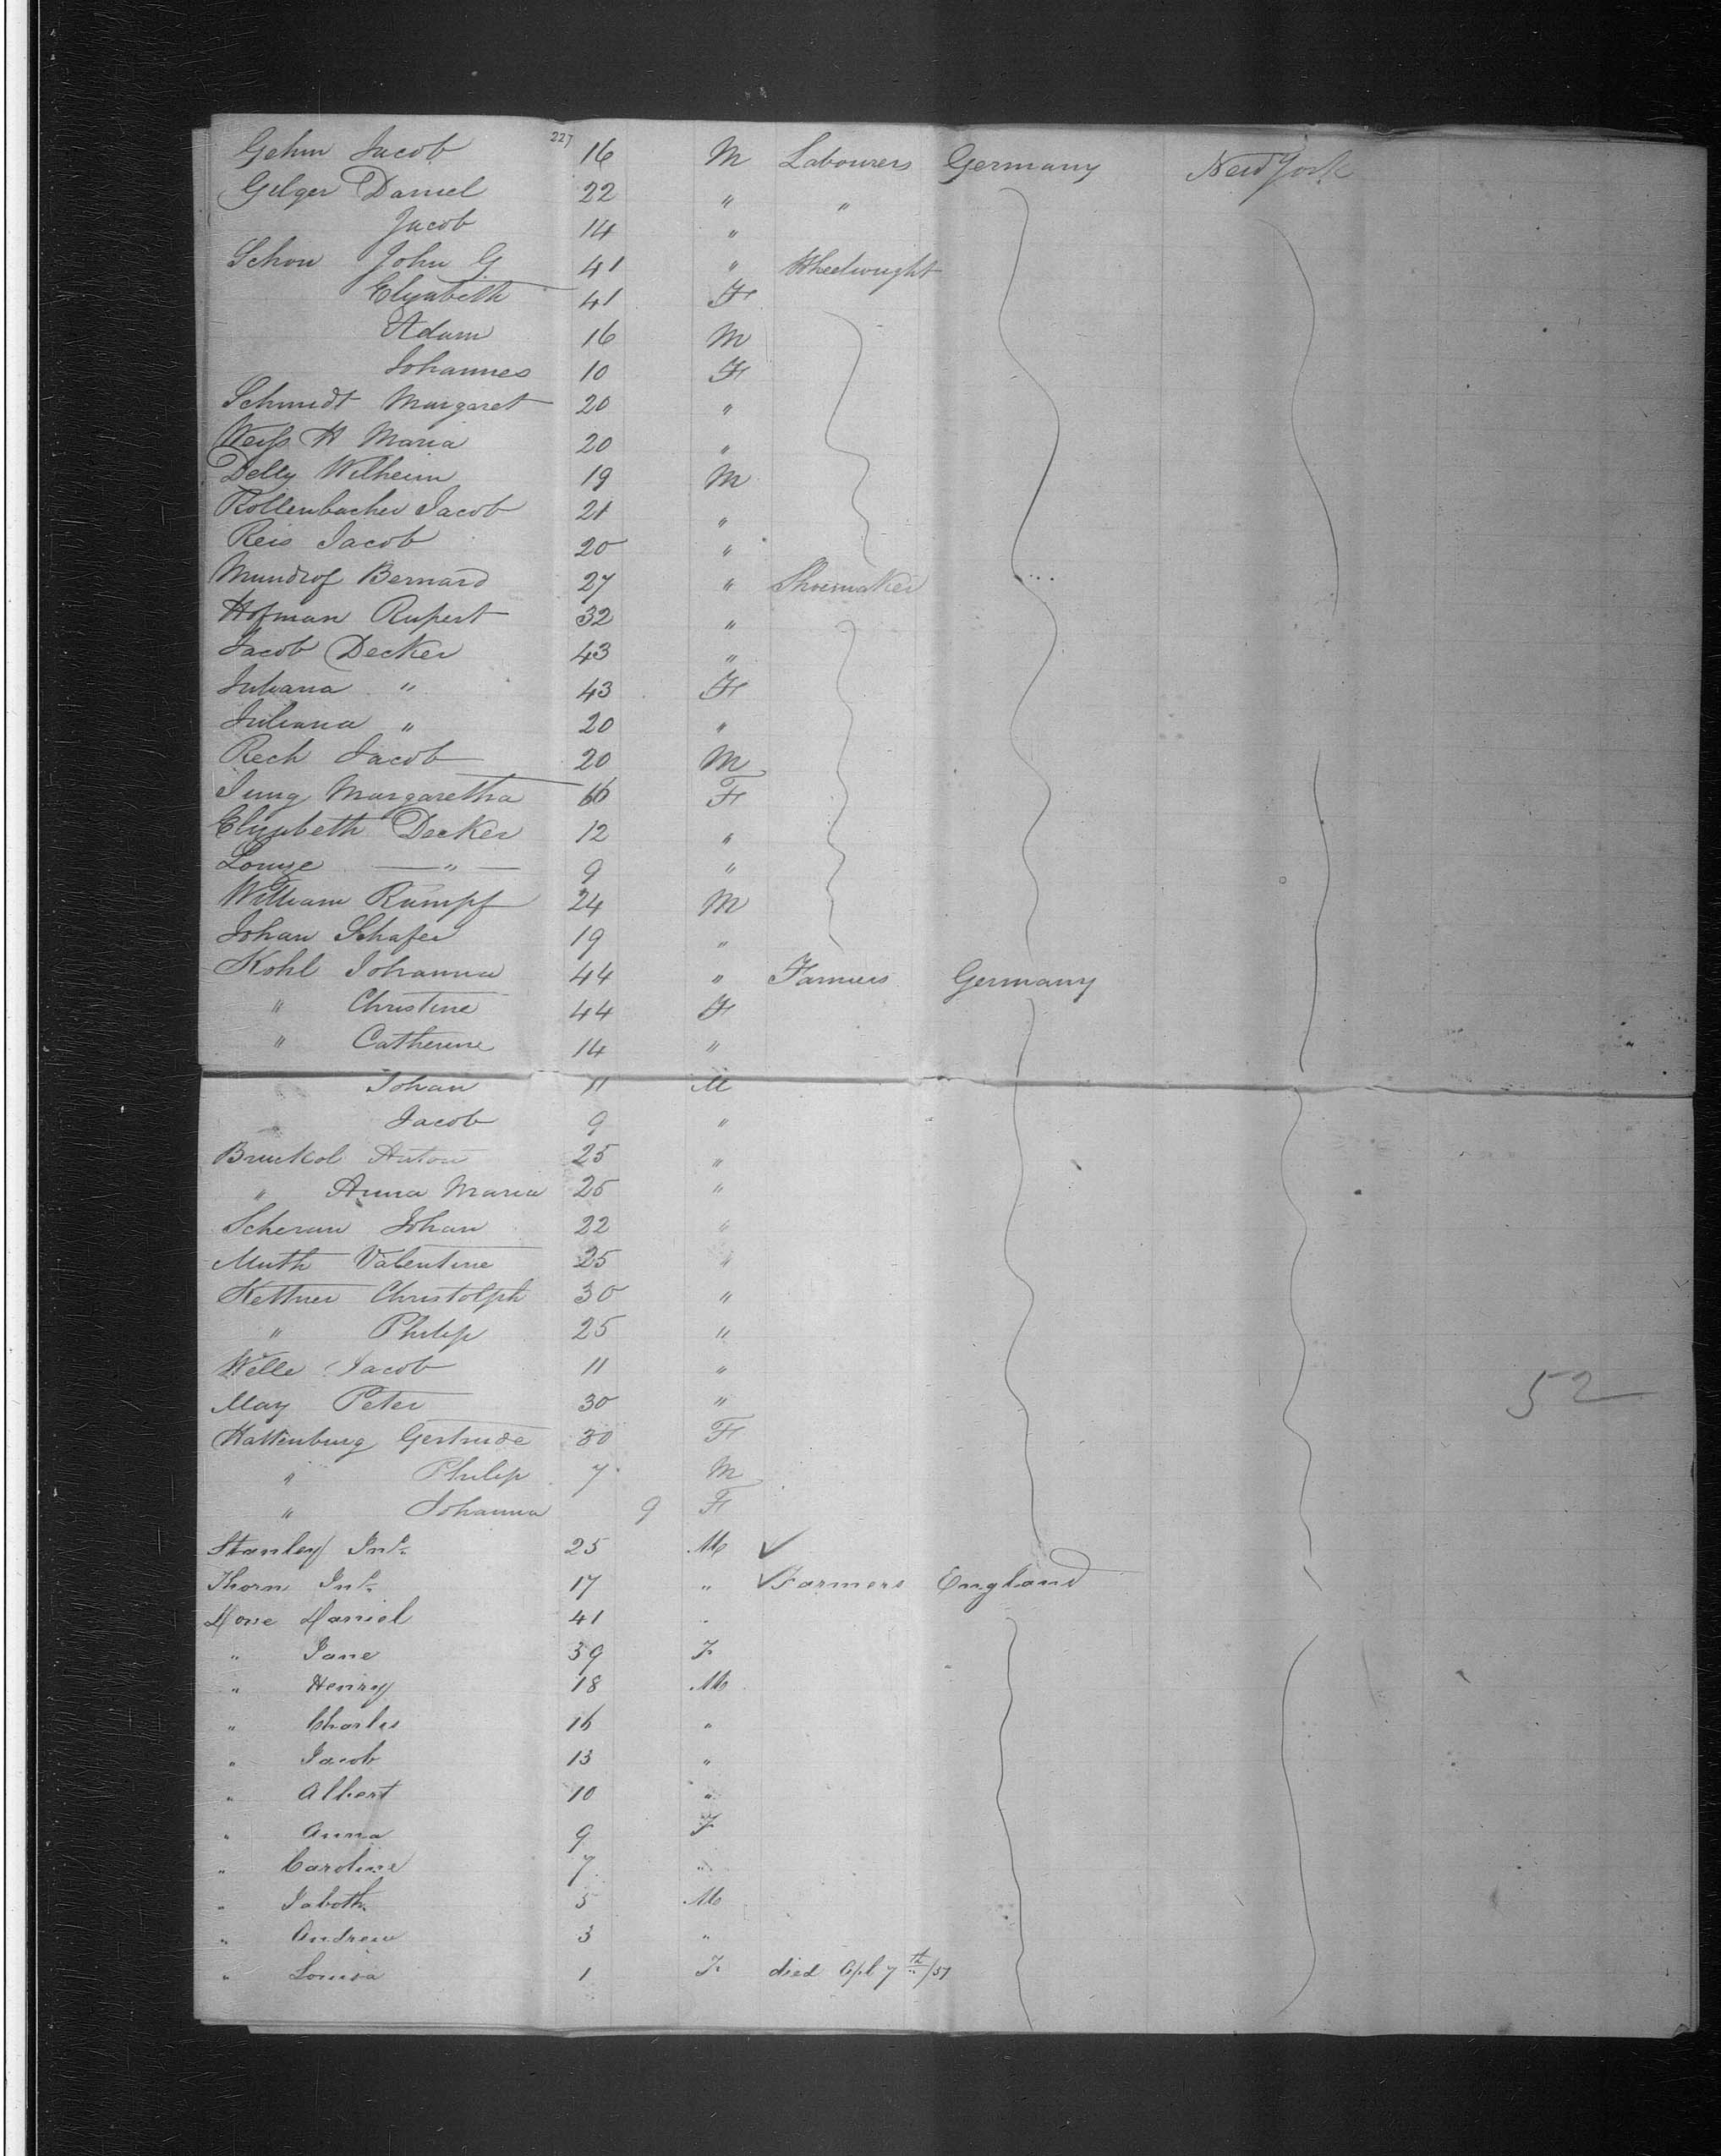 227
Gehm Jacob 16 M Labourers Germany New York
Gilger Daniel 22 " "
Jacob 14 "
Schon John G 41 " Wheelwright
Elizabeth 41 F
Adam 16 M
Johannes 10 F
Schmidt Margaret 20 "
Weiss A Maria 20 "
Delly Wilheim 19 M
Rollenbacher Jacob 21 "
Reis Jacob 20 "
Mundrof Bernard 27 " Shoemaker
Hofman Rupert 32 "
Jacob Decker 43 "
Juliana " 43 F
Juliana " 20 "
Rech Jacob 20 M
Jung Margaretha 16 F
Elizabeth Decker 12 "
Louize — " — 9 "
William Rumpf 24 M
Johan Schafer 19 "
Kohl Johanna 44 " Farmers Germany
" Christine 44 F
" Catherine 14 "
Johan 11 M
Jacob 9 "
Bruckol Anton 25 "
" Anna Maria 25 "
Scheran Johan 22 "
Muth Valentine 25 "
Kettner Christolph 30 "
" Philip 25 "
Welle Jacob 11 "
May Peter 30 "
Hattenburg Gertrude 30 F
" Philip 7 M
" Johanna 9 F
Stanley Jno. 25 M ✓
Thorn Jno. 17 " ✓ Farmers England
Dore Daniel 41 "
" Jane 39 F
" Henry 18 M
" Charles 16 "
" Jacob 13 "
" Albert 10 "
" Anna 9 F
" Caroline 7 "
" Jaboth 5 M
" Andrew 3 "
" Louisa 1 F died Apl 7th/57
52